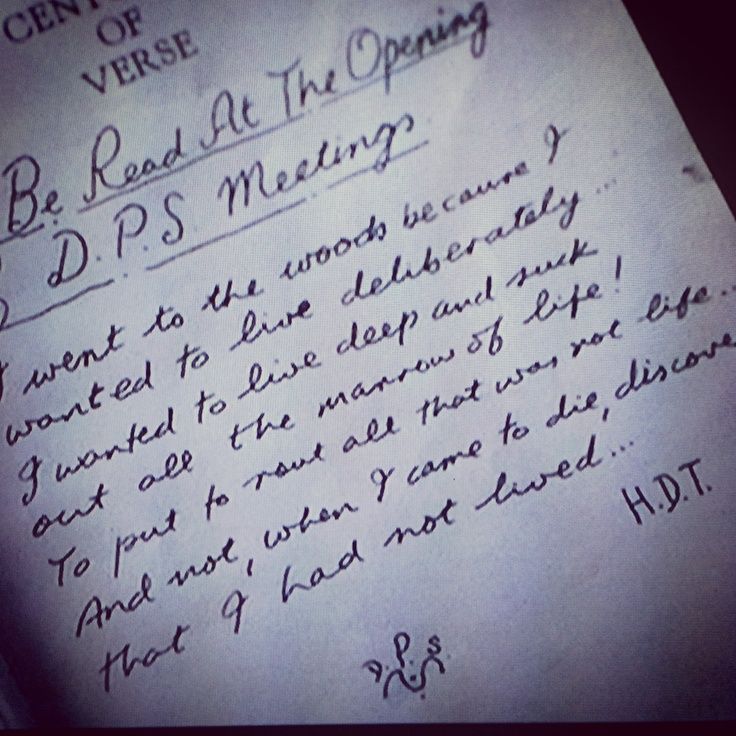 OF
VERSE
Be Read At The Opening
D.P.S. Meetings
I went to the woods because I
wanted to live deliberately...
I wanted to live deep and suck
out all the marrow of life!
To put to rout all that was not life...
And not, when I came to die, discove
that I had not lived...
H.D.T.
D.P.S.